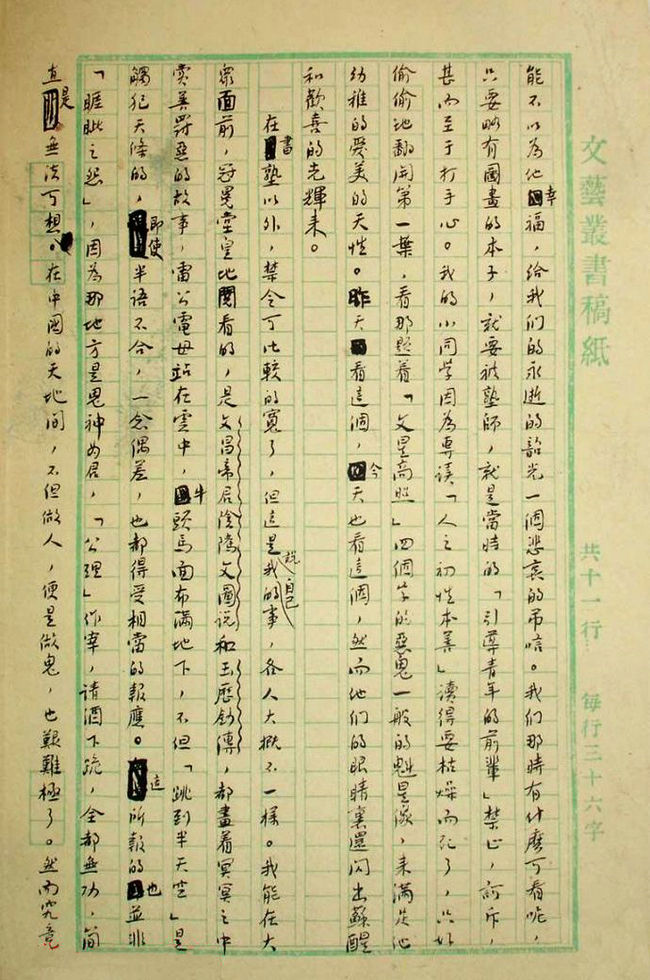 文藝叢書稿紙 共十一行 每行三十六字
能不以為他幸福,給我们的永逝的韶光一個悲哀的吊唁。我们那時有什麽可看呢,
只要略有圖畫的本子,就要被塾師,就是當時的「引導青年的前輩」禁止,訶斥,
甚而至于打手心。我的小同学因為專讀「人之初性本善」讀得要枯燥而死了,只好
偷偷地翻開第一葉,看那題着「文星高照」四個字的惡鬼一般的魁星像,来满足他
幼稚的愛美的天性。昨天看這個,今天也看這個,然而他们的眼睛裏還闪出蘇醒
和歡喜的光輝来。
在書塾以外,禁令可比較的寬了,但這是說我自己的事,各人大概不一樣。我能在大
衆面前,冠冕堂皇地閱看的,是文昌帝君陰隲文圖說和玉歷鈔傳,都畫着冥冥之中
賞善罰惡的故事,雷公電母站在雲中,牛頭馬面布满地下,不但「跳到半天空」是
觸犯天條的,即使半语不合,一念偶差,也都得受相當的報應。這所報的也並非
「睚眦之怨」,因為那地方是鬼神為君,「公理」作宰,請酒下跪,全都無功,簡
直是無法可想。在中國的天地间,不但做人,便是做鬼,也艱難極了。然而究竟